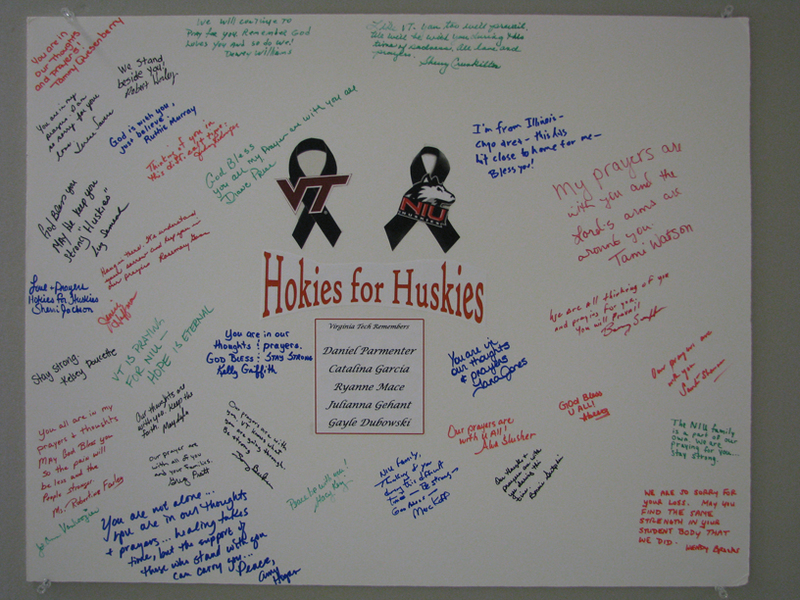 You are in
our thoughts
and prayers!
- Tammy Quesenberry
We will continue to
pray for you. Remember God
loves you and so do we!
Dewey Williams
time of sadness. All love and
prayers.
We Stand
beside you!
Robert
You are in my
prayers
so sorry for you
love
God is with you,
just believe.
Ruthie Murray
Thinking of you in
this difficult time.
God Bless
you all my Prayer are with you all
Dave Price
I'm from Illinois -
Chgo area - this has
hit close to home for me -
Bless you!
My prayers are
with you and the
Lord's arms are
around you.
Tami Watson
God Bless you
May He keep you
strong "Huskies"
VT
NIU
HUSKIES
Hang in there. We understand
your sorrow and keep you in
our prayers
Love & Prayers
Hokies For Huskies
Sherri Jackson
Hokies for Huskies
Virginia Tech Remembers
Daniel Parmenter
Catalina Garcia
Ryanne Mace
Julianna Gehant
Gayle Dubowski
VT IS PRAYING
FOR NIU -
HOPE IS ETERNAL
You are in our
thoughts & prayers.
God Bless & Stay Strong
Kelly Griffith
We are all thinking of you
and praying for you.
You will Prevail!
Stay strong.
Kelsey
You are in
our thoughts
& prayers
Lara Jones
Our prayers are
with you
Our thoughts are
with you. Keep the
faith.
God Bless
U ALL!
You all are in my
prayers & thoughts
May God Bless you
So the pain will
be less and the
People stronger.
Ms. Robertine Farley
Our prayers are with
you. VT knows what
you are going through.
Our prayers are
with U All!
Aha Slusher
The NIU family
is a part of our
own. We are
praying for you.
Stay strong.
Our prayer are
with all of you
and your families.
Greg Pratt
Peace be with you!
NIU family,
Thinking of you
during this difficult
time - Be strong -
God Bless -
Our thoughts &
prayers are with
you during this
time
WE ARE SO SORRY FOR
YOUR LOSS. MAY YOU
FIND THE SAME
STRENGTH IN YOUR
STUDENT BODY THAT
WE DID.
You are not alone...
you are in our thoughts
& prayers... healing takes
time, but the support of
those who stand with you
can carry you...
Peace,
Amy